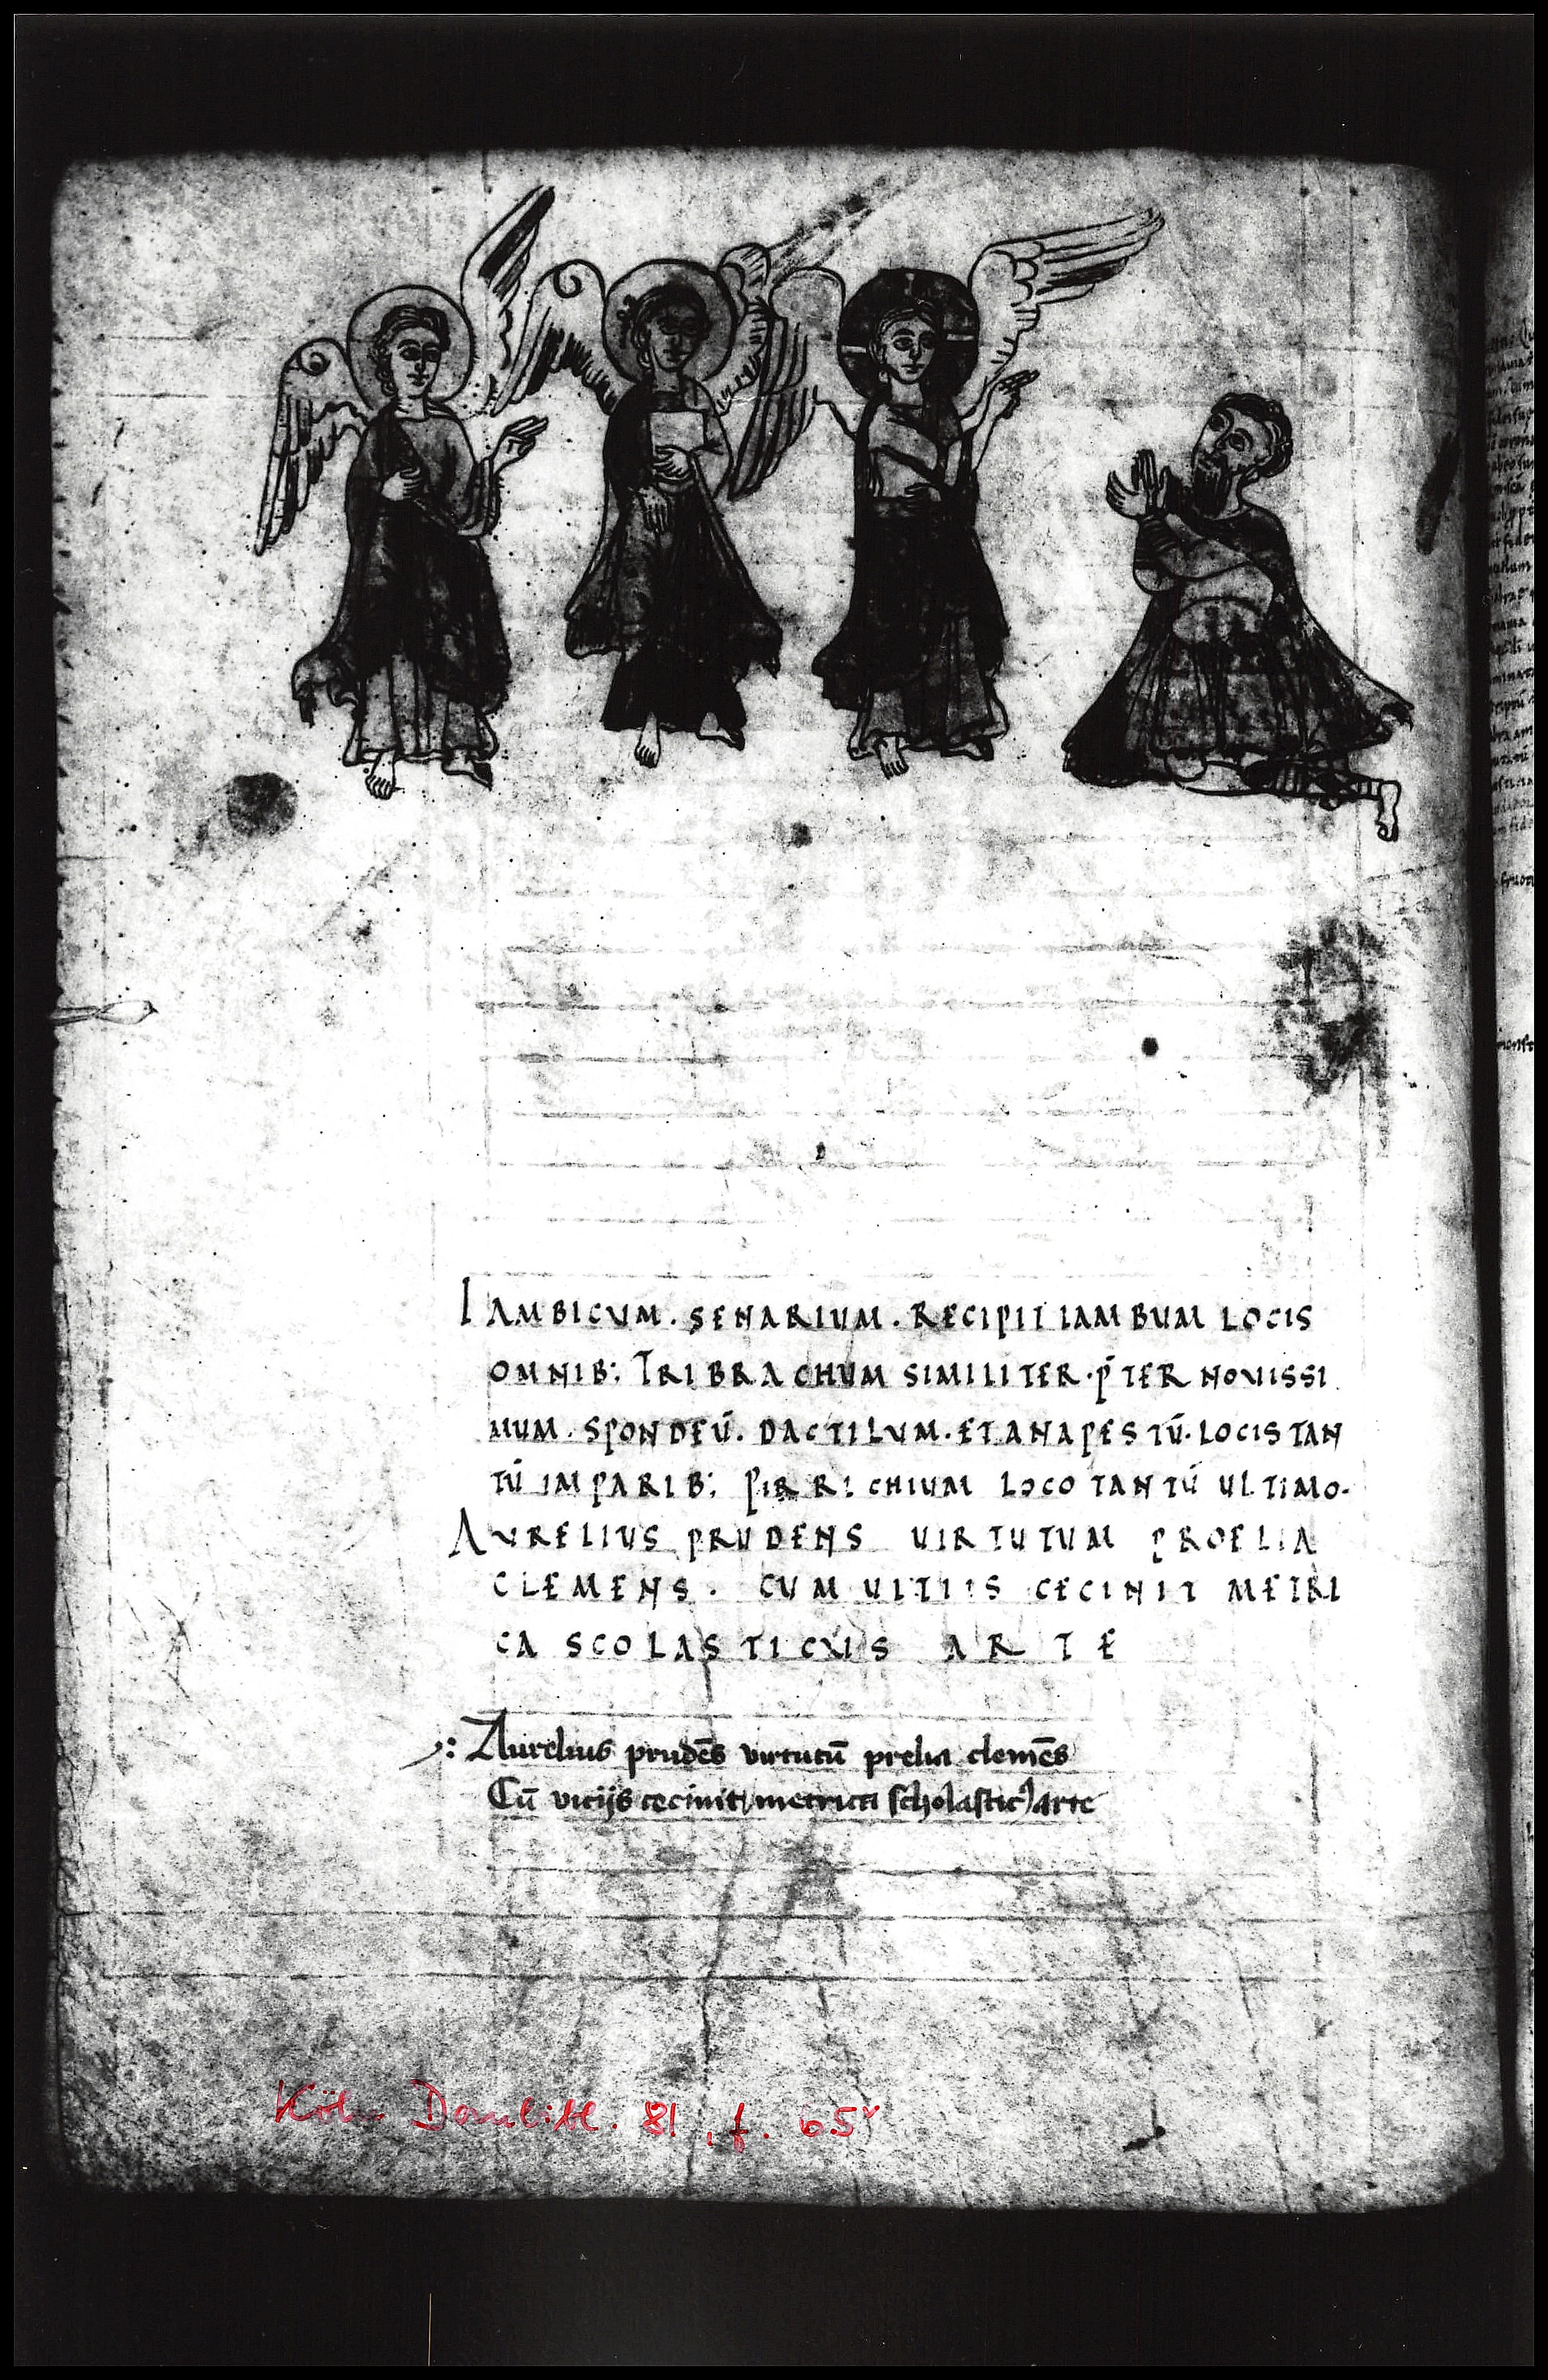 IAMBICVM. SENARIUM. RECIPIT IAMBUM LOCIS
OMNIB; TRIBRACHUM SIMILITER. P̄TER NOVISSI
MUM. SPONDEŪ. DACTILVM. ET ANAPESTŪ. LOCIS TAN
TŪ IMPARIB; PIRRICHIUM LOCO TANTŪ ULTIMO.
AVRELIUS PRUDENS UIRTUTUM PROELIA
CLEMENS. CUM UITIIS CECINIT METRI
CA SCOLASTICUS ARTE
Aurelius prudēs virtutū prelia clemēs
Cū vicijs cecinit metrica scholastic9 arte
Köln Dombibl. 81, f. 65v